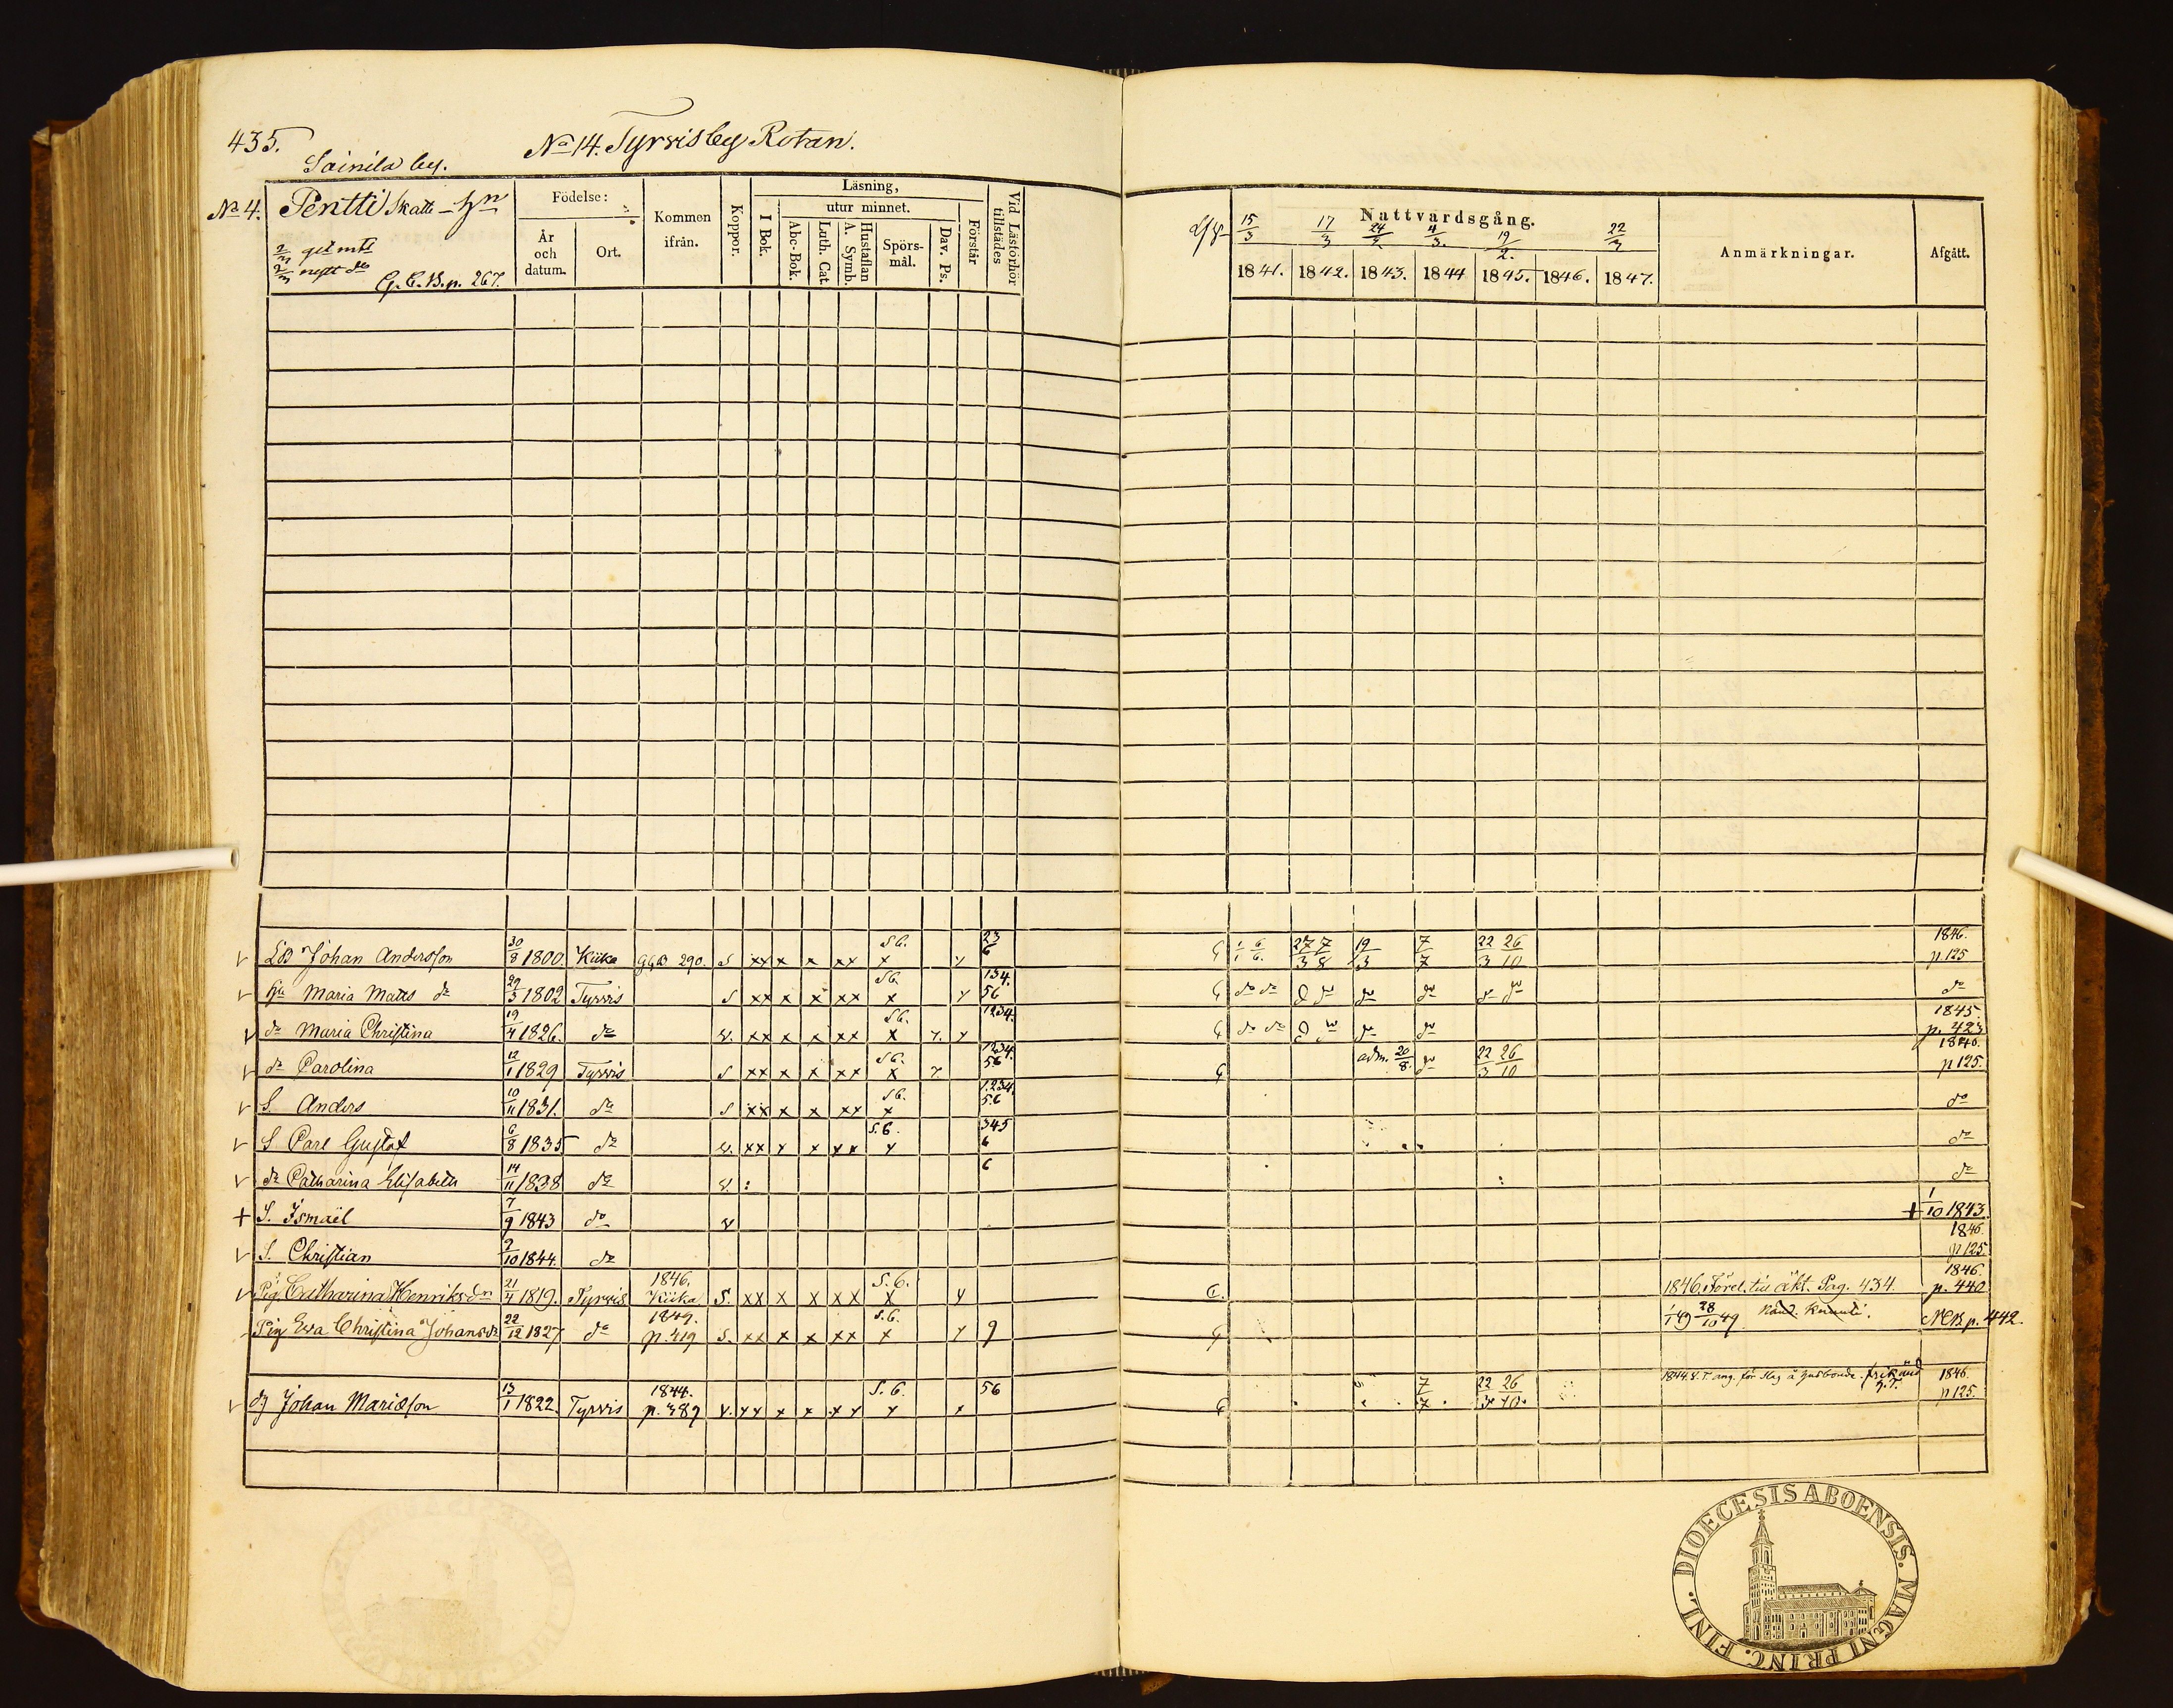 435.
No 14. Tyrvisby Rotan.
Sainila by.
No 4. Pentti Skatte-hn
G.C.B. p. 267.
Födelse:
År och datum.
Ort.
Kommen ifrån.
Koppor.
Läsning,
I Bok.
utur minnet.
Abc-Bok.
Luth. Cat
A. Symb. Hustaflan
Spörs-mål.
Dav. Ps.
Förstår
Vid Läsförhör tillstädes
Nattvardsgång.
15/3 17/3 24/2 4/3. 19/2. 22/3
1841. 1842. 1843. 1844 1845. 1846. 1847.
Anmärkningar.
Afgått.
Johan Andersson 30/8 1800. Kiika 290. S xx x x xx S6. x 23 6 27/3 7/8 19/3 7/7 22/3 26/10 1846. p 125
Hu Maria Mats do 29/3 1802 Tyrvis S xx x x xx S6. x 134. 56 do do do
do Maria Christina 19/4 1826. do v. xx x x xx S6. x 1234. do do 1845. p. 423
do Carolina 12/1 1829 Tyrvis S xx x x xx S6. x 1234. 56 adm. 20/8. 22/3 26/10 1846. p 125.
S. Anders 10/11 1831. do S xx x x xx S6. x 1.234. 5.6 do
S Carl Gustaf 6/8 1835 do v. xx x x xx S.6. x 345 6 do
do Catharina Elisabeth 14/11 1838 do v. 6 do
+ S. Ismaël 7/9 1843 do v + 1/10 1843.
S. Christian 2/10 1844. do 1846. p 125.
Pig. Catharina Henriksdr 21/4 1819. Tyrvis 1846. Kiika S. xx x x xx S.6. x 1846. Förel. till äkt. Pag. 434. 1846. p. 440
Pig Eva Christina Johansdr 22/12 1827 do 1849. p. 419 S. xx x x xx S.6. x 9 1/1 49 28/10 49 NCB p. 442.
dg Johan Mariæson 13/1 1822. Tyrvis 1844. p. 389 v. xx x x xx S.6. x 56 7/7 22/3 26/10 1844. ang. för slag å husbonde 1846. p 125.
DIOECESIS ABOENSIS. MAGNI PRINC. FINL.